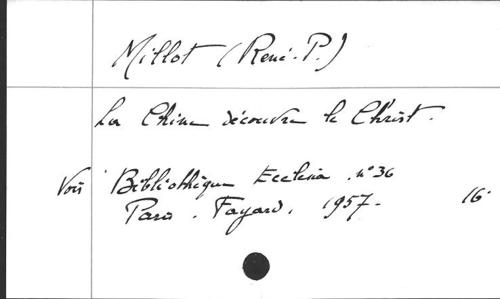 Millot (René-P.)
La Chine découvre le Christ.
Voir Bibliothèque Ecclesia. n° 36
Paris. Fayard. 1957. 16°